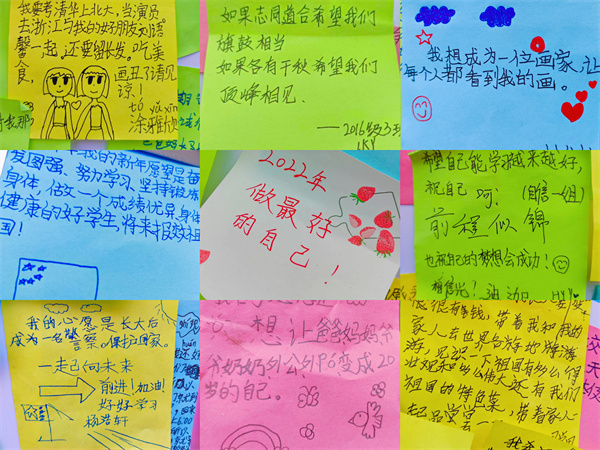 我要考清华上北大,当演员
去浙江与我的好朋友刘语
馨一起,还要留长发。吃美
食,
画丑了请见
谅!
tú yǎ xīn
涂雅欣
如果志同道合希望我们
旗鼓相当
如果各有千秋希望我们
顶峰相见.
——2016级3班
LKY
我想成为一位画家,让
每个人都看到我的画。
我的新年愿望是奋
发图强、努力学习、坚持锻炼
身体,做一个成绩优异,身体
健康的好学生,将来报效祖
国!
2022年
做最好
的自己!
希望自己能学习越来越好,
祝自己
前程似锦
也祝自己的梦想会成功!
相信光!
我的心愿是长大后
成为一名警察。保护国家。
一走己向未来
前进!加油!
好好学习
杨浩轩
想让爸爸妈妈爷
爷奶奶外公外Pó变成20
岁的自己。
很有钱,带着我和我的
家人去世界各地旅游
祖国的特色菜,带着家人